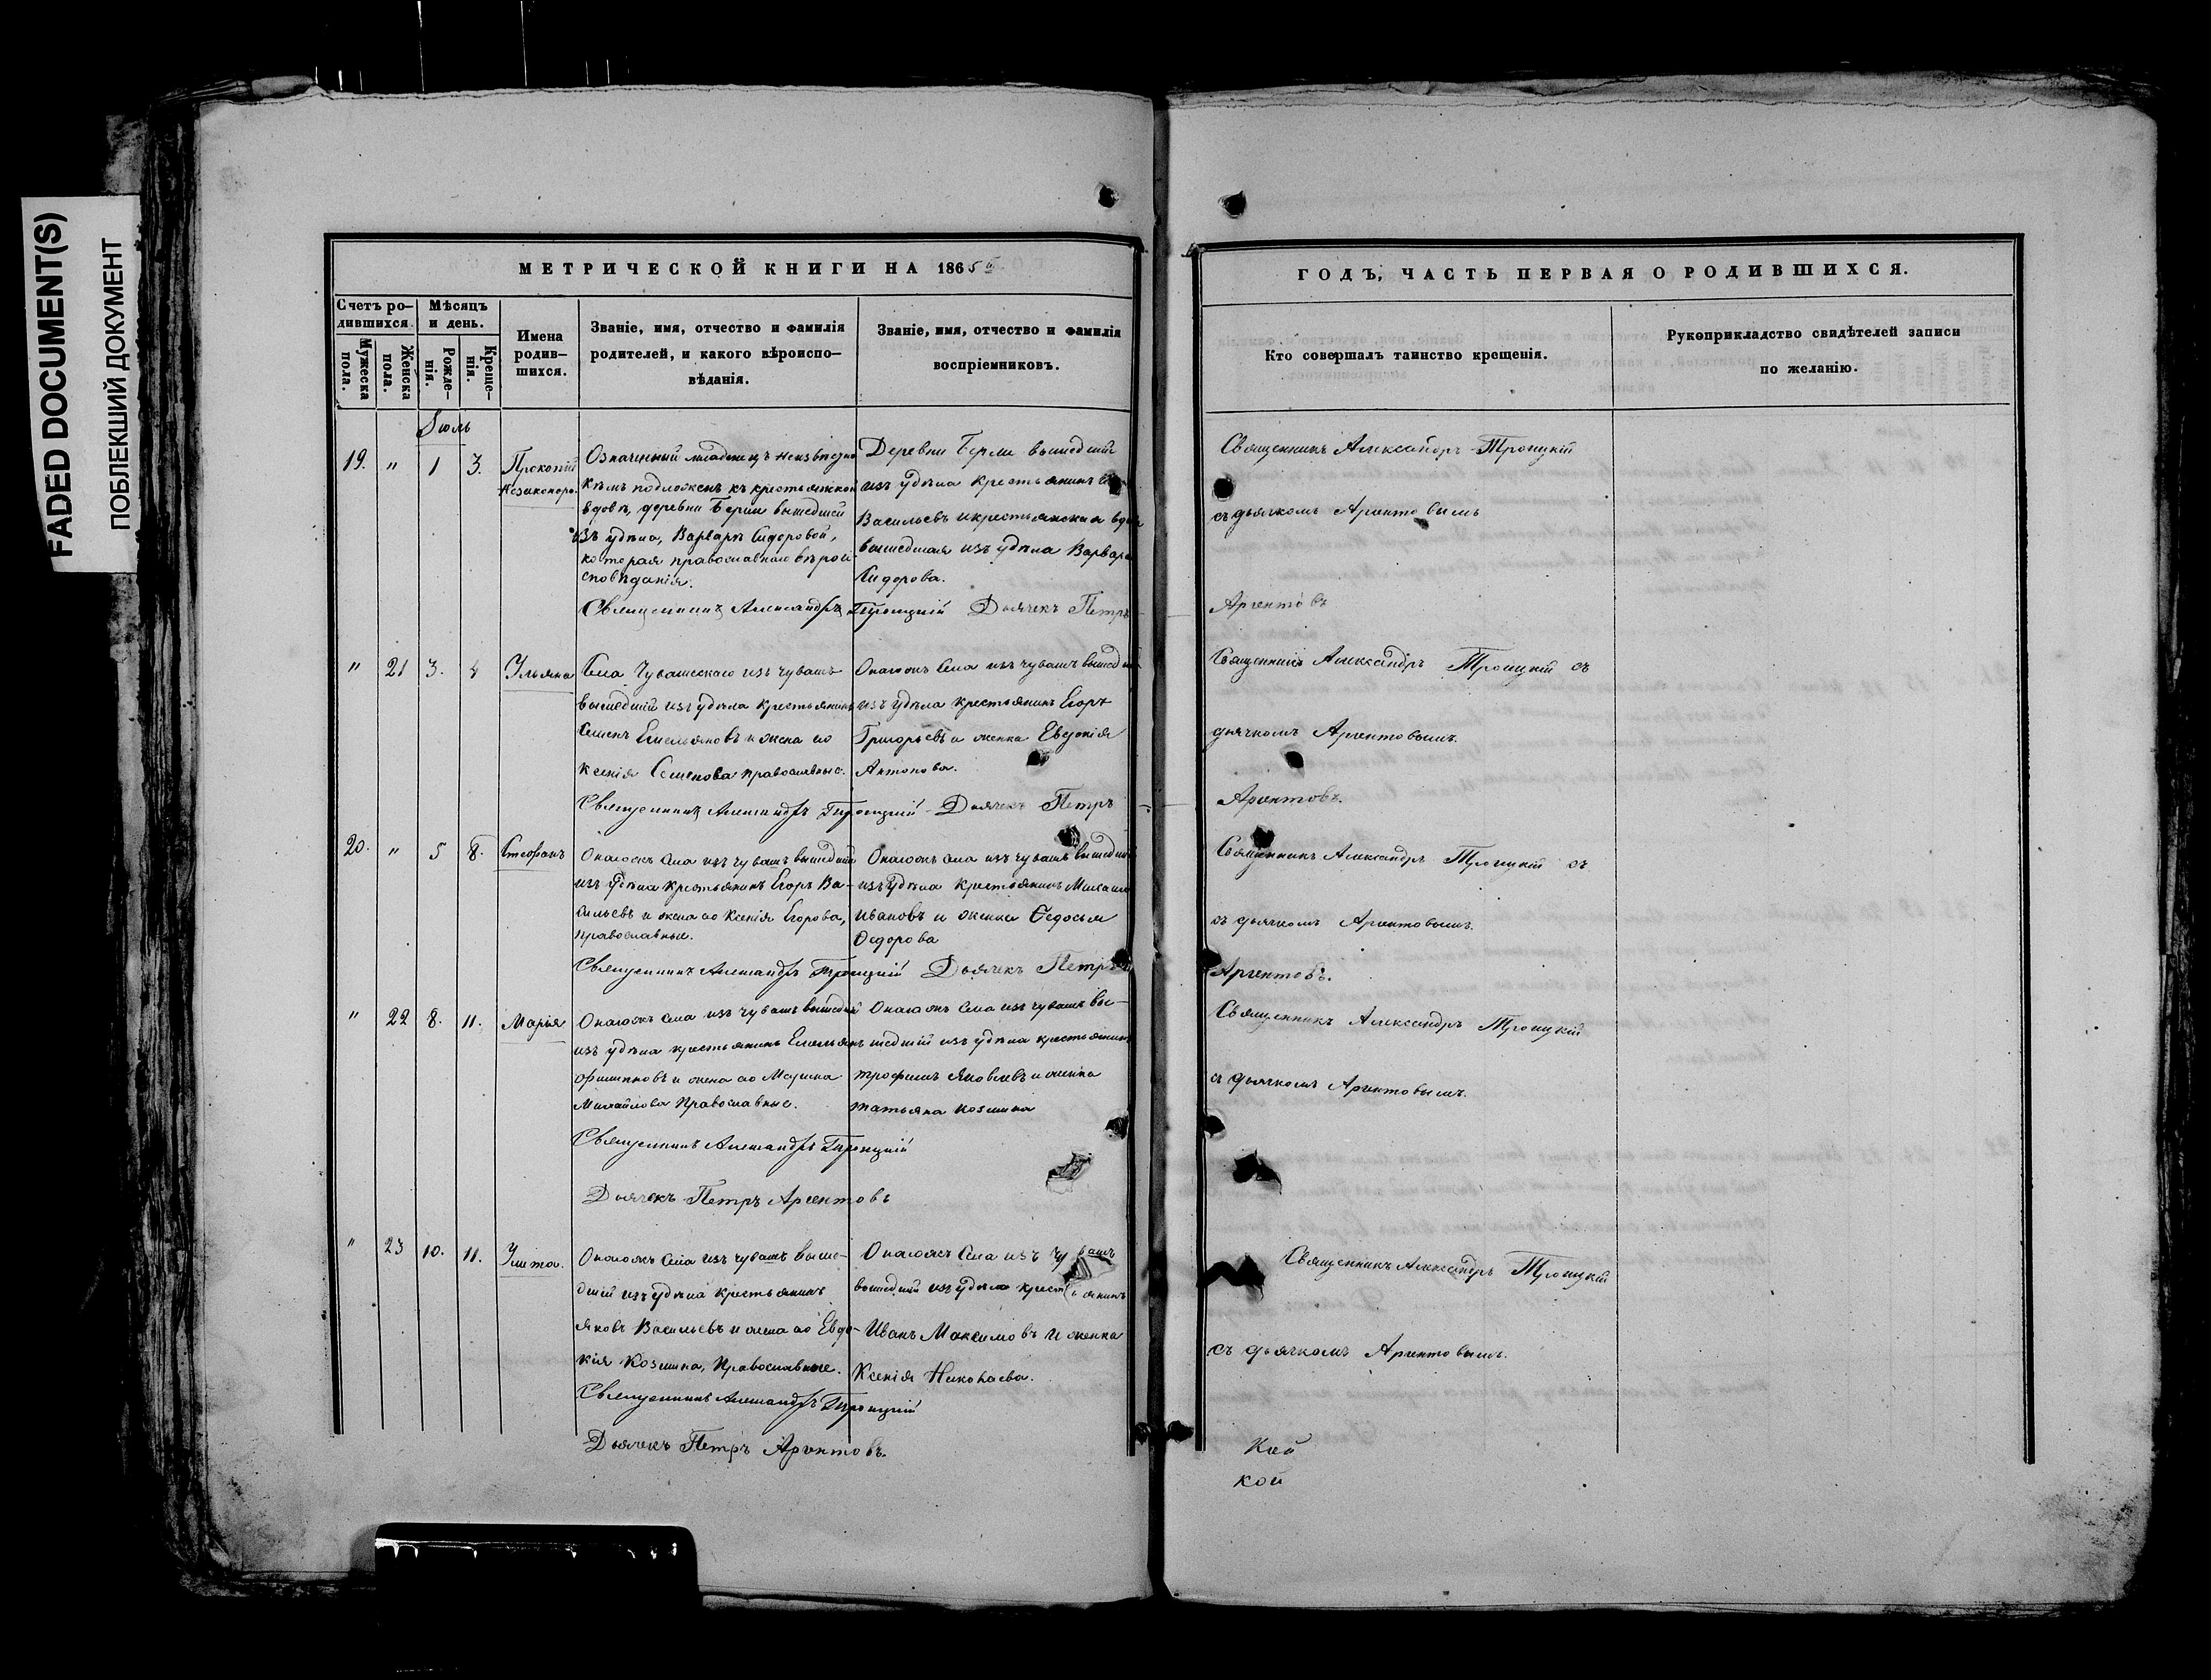 FADED DOCUMENT(S)
ПОБЛЕКШИЙ ДОКУМЕНТ
МЕТРИЧЕСКОЙ КНИГИ НА 1865
Счетъ ро-
дившихся.
Мужеска пола.
Женска пола.
Мѣсяцъ
и день.
Рожде-
нія.
Креще-
нія.
Имена
родив-
шихся.
Званіе, имя, отчество и фамилія
родителей, и какого вѣроиспо-
вѣданія.
Званіе, имя, отчество и фамилія
воспріемниковъ.
Іюль
19. " 1 3. Прокопій
Незаконоро.
Означенный младенецъ неизвѣстно
кѣмъ подложенъ къ крестьянской
вдовѣ, деревни Берли вышедшей
изъ удѣла, Варварѣ Сидоровой,
которая православнаго вѣрои
сповѣданія.
Деревни Берли вышедшій
изъ удѣла крестьянинъ
Васильевъ и крестьянская вдова
вышедшая изъ удѣла Варвара
Сидорова.
Священникъ Александръ Троицкій Дьячекъ Петръ
" 21 3. 4 Ульяна
Села Чувашскаго изъ чувашъ
вышедшій изъ удѣла крестьянинъ
Семенъ Емельяновъ и жена его
Ксенія Семенова православные.
Онагожъ села изъ чувашъ вышедшій
изъ удѣла крестьянинъ Егоръ
Григорьевъ и женка Евдокія
Антонова.
Священникъ Александръ Троицкій Дьячекъ Петръ
20. " 5 8. Стефанъ
Онагожъ села изъ чувашъ вышедшій
изъ удѣла крестьянинъ Егоръ Ва-
сильевъ и жена его Ксенія Егорова,
православные.
Онагожъ села изъ чувашъ вышедшій
изъ удѣла крестьянинъ Михаилъ
Ивановъ и женка Федосья
Федорова
Священникъ Александръ Троицкій Дьячекъ Петръ
" 22 8. 11. Марія
Онагожъ села изъ чувашъ вышедшій
изъ удѣла крестьянинъ Емельянъ
Филиповъ и жена его Марина
Михайлова православные.
Онагожъ села изъ чувашъ вы-
шедшій изъ удѣла крестьянинъ
Трофимъ Яковлевъ и женка
Татьяна Козмина
Священникъ Александръ Троицкій
Дьячекъ Петръ Аргентовъ
" 23 10. 11. Улита.
Онагожъ села изъ чувашъ выше-
дшій изъ удѣла крестьянинъ
Яковъ Васильевъ и жена его Евдо-
кія Козмина, православные.
Онагожъ села изъ чувашъ
вышедшій изъ удѣла крестьянинъ
Иванъ Максимовъ и женка
Ксенія Николаева.
Священникъ Александръ Троицкій
Дьячекъ Петръ Аргентовъ.
ГОДЪ, ЧАСТЬ ПЕРВАЯ О РОДИВШИХСЯ.
Кто совершалъ таинство крещенія.
Рукоприкладство свидѣтелей записи
по желанію.
Священникъ Александръ Троицкій
съ дьячкомъ Аргентовымъ
Аргентовъ
Священникъ Александръ Троицкій съ
дьячкомъ Аргентовымъ.
Аргентовъ.
Священникъ Александръ Троицкій съ
съ дьячкомъ Аргентовымъ.
Аргентовъ.
Священникъ Александръ Троицкій
съ дьячкомъ Аргентовымъ.
Священникъ Александръ Троицкій
съ дьячкомъ Аргентовымъ.
Кой
кой